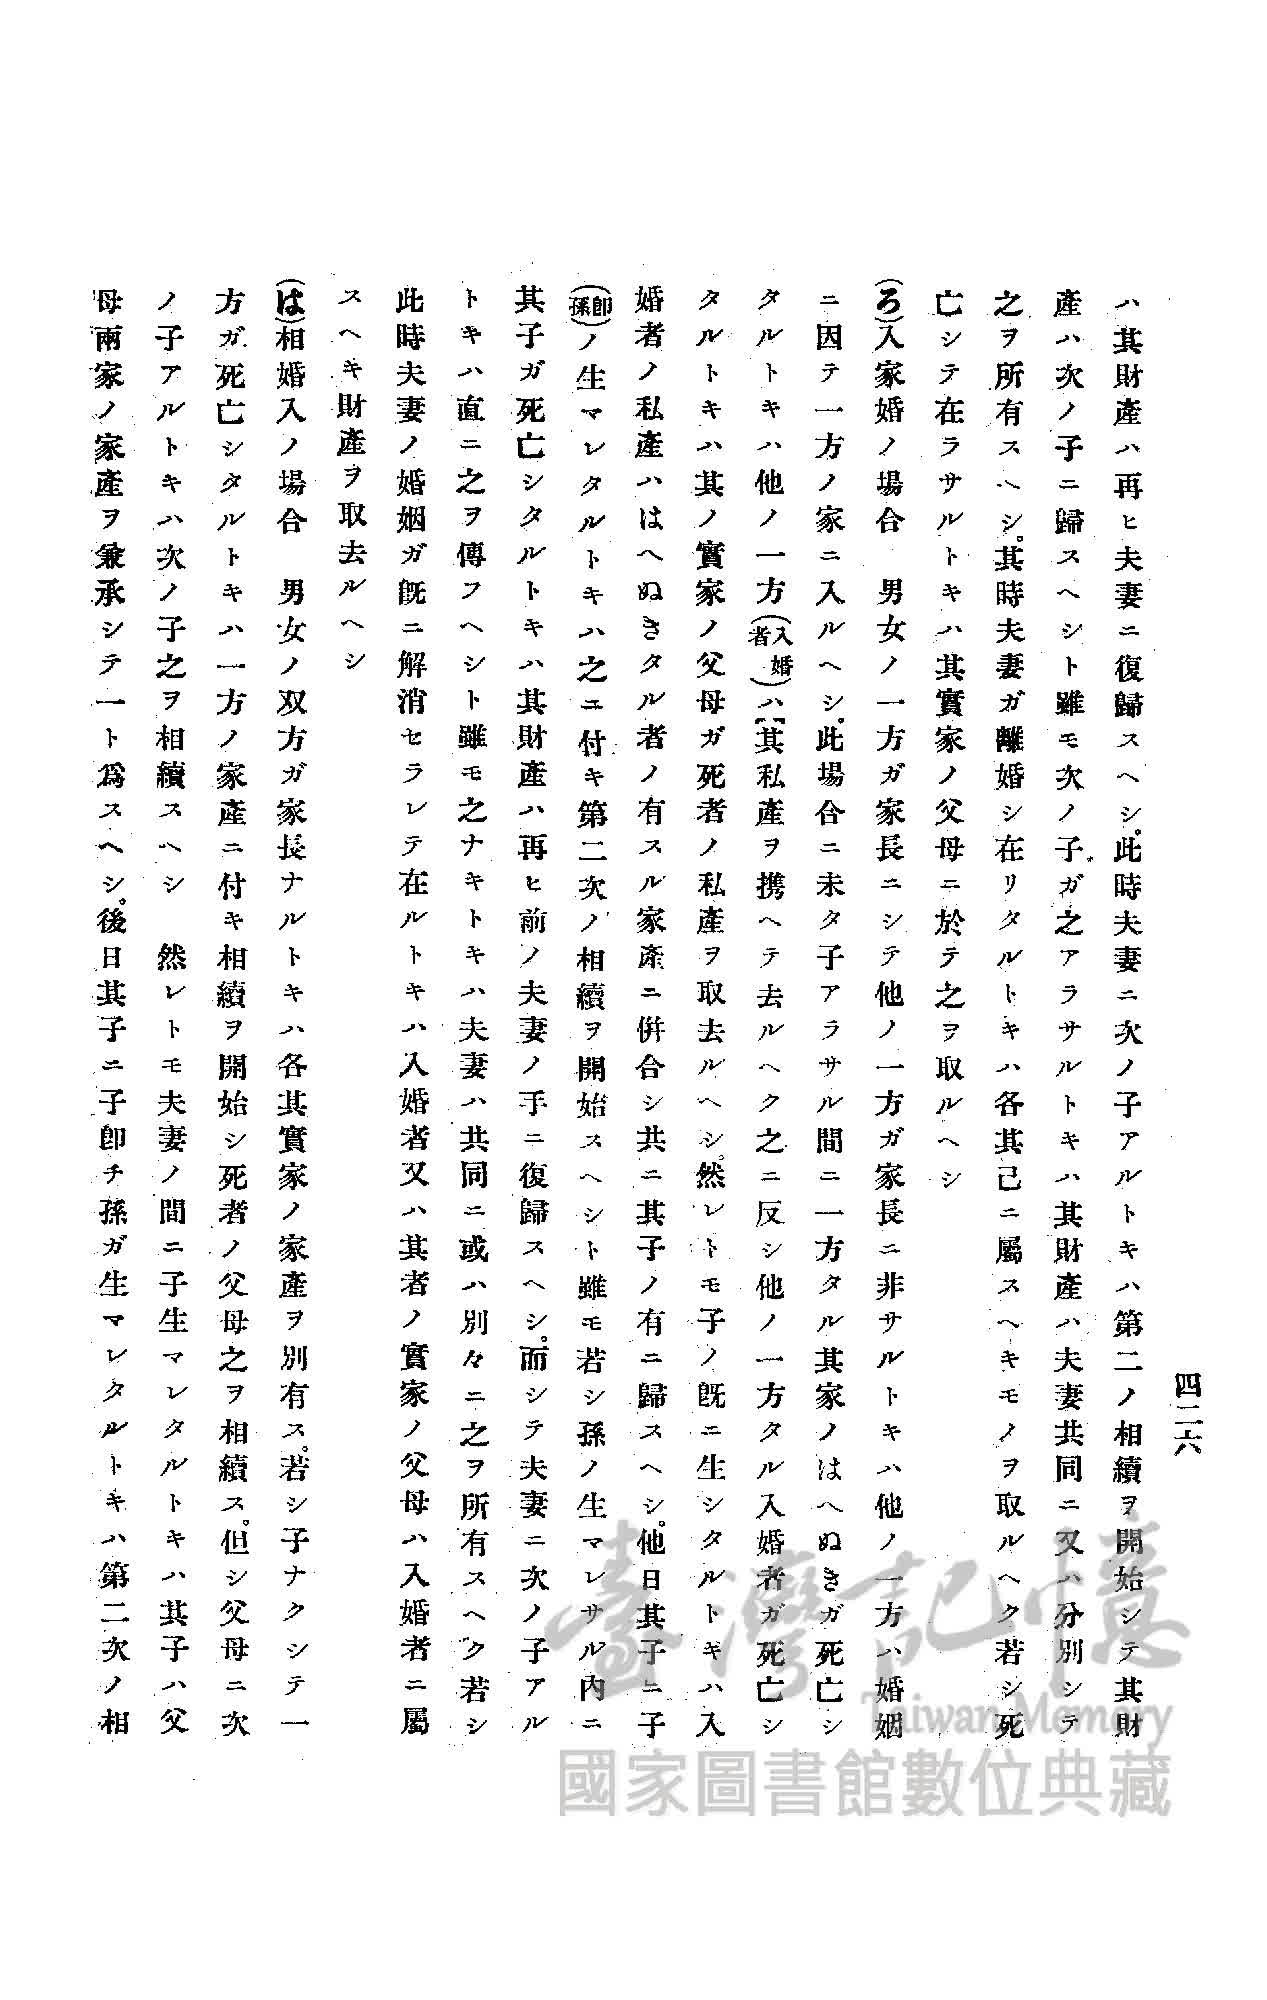 四二六
ハ其財產ハ再ヒ夫妻ニ復歸スヘシ。此時夫妻ニ次ノ子アルトキハ第二ノ相續ヲ開始シテ其財
產ハ次ノ子ニ歸スヘシト雖モ次ノ子ガ之アラサルトキハ其財產ハ夫妻共同ニ又ハ分別シテ
之ヲ所有スヘシ。其時夫妻ガ離婚シ在リタルトキハ各其己ニ屬スヘキモノヲ取ルヘク若シ死
亡シテ在ラサルトキハ其實家ノ父母ニ於テ之ヲ取ルヘシ
(ろ)入家婚ノ場合　男女ノ一方ガ家長ニシテ他ノ一方ガ家長ニ非サルトキハ他ノ一方ハ婚姻
ニ因テ一方ノ家ニ入ルヘシ。此場合ニ未タ子アラサル間ニ一方タル其家ノはへぬきガ死亡シ
タルトキハ他ノ一方(入婚者)ハ其私產ヲ携ヘテ去ルヘク之ニ反シ他ノ一方タル入婚者ガ死亡シ
タルトキハ其ノ實家ノ父母ガ死者ノ私產ヲ取去ルヘシ。然レトモ子ノ既ニ生シタルトキハ入
婚者ノ私產ハはへぬきタル者ノ有スル家產ニ併合シ共ニ其子ノ有ニ歸スヘシ。他日其子ニ子
(卽孫)ノ生マレタルトキハ之ニ付キ第二次ノ相續ヲ開始スヘシト雖モ若シ孫ノ生マレサル內ニ
其子ガ死亡シタルトキハ其財產ハ再ヒ前ノ夫妻ノ手ニ復歸スヘシ。而シテ夫妻ニ次ノ子アル
トキハ直ニ之ヲ傳フヘシト雖モ之ナキトキハ夫妻ハ共同ニ或ハ別々ニ之ヲ所有スヘク若シ
此時夫妻ノ婚姻ガ既ニ解消セラレテ在ルトキハ入婚者又ハ其者ノ實家ノ父母ハ入婚者ニ屬
スヘキ財產ヲ取去ルヘシ
(は)相婚入ノ場合　男女ノ双方ガ家長ナルトキハ各其實家ノ家產ヲ別有ス。若シ子ナクシテ一
方ガ死亡シタルトキハ一方ノ家產ニ付キ相續ヲ開始シ死者ノ父母之ヲ相續ス。但シ父母ニ次
ノ子アルトキハ次ノ子之ヲ相續スヘシ　然レトモ夫妻ノ間ニ子生マレタルトキハ其子ハ父
母兩家ノ家產ヲ兼承シテ一ト爲スヘシ。後日其子ニ子卽チ孫ガ生マレタルトキハ第二次ノ相
臺灣記憶
Taiwan Memory
國家圖書館數位典藏